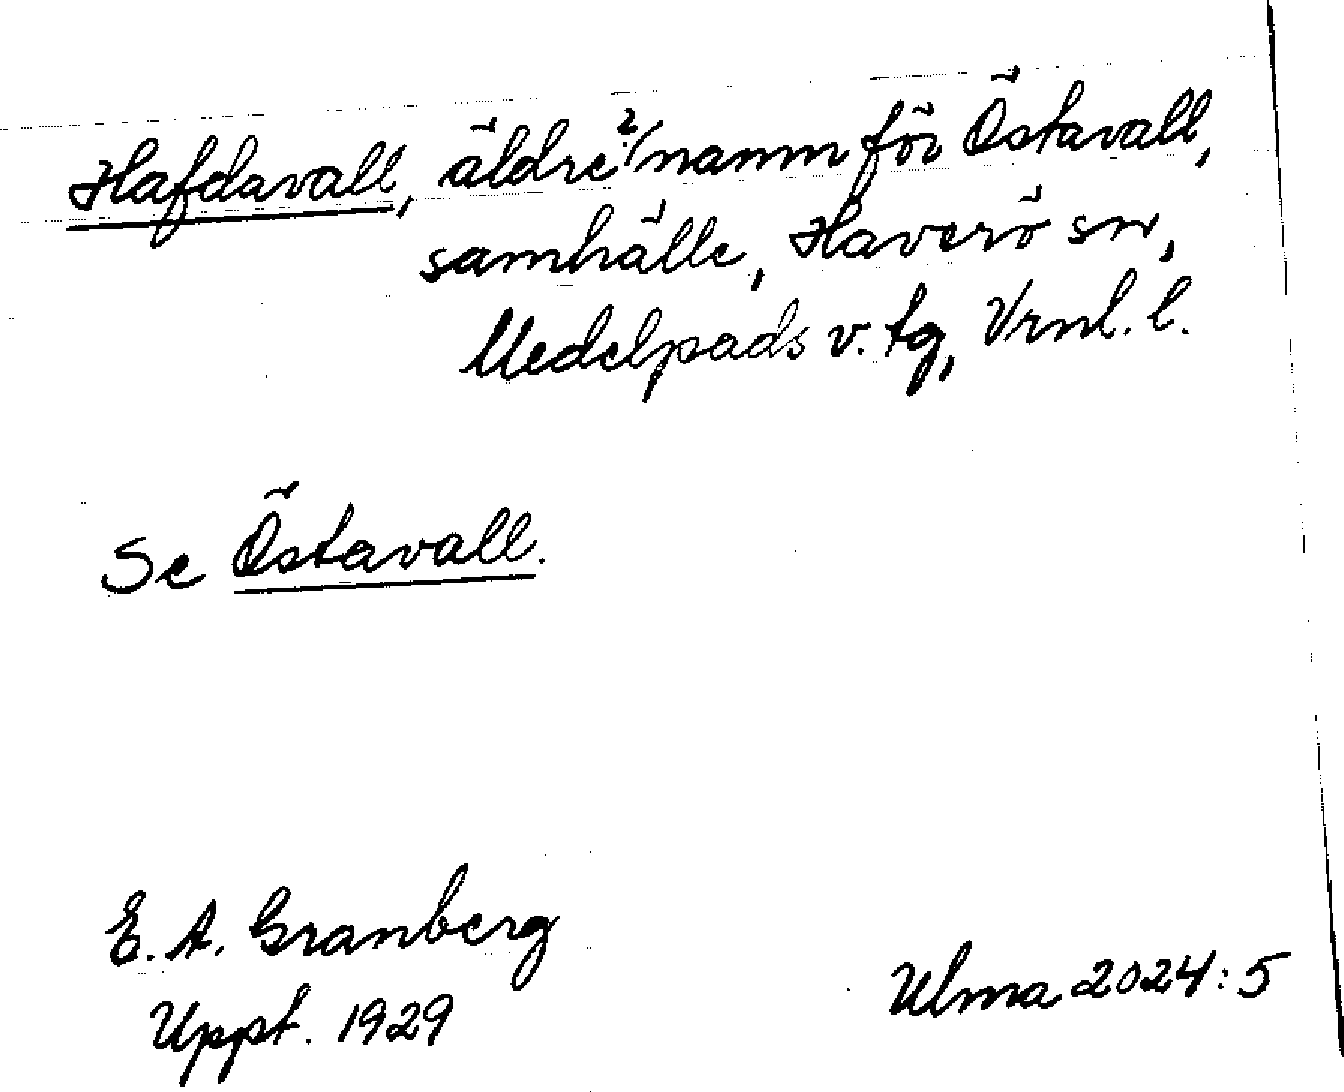 Hafdavall, äldre ?/namn för Östavall,
samhälle, Haverö sn,
Medelpads v. tg, Vrnl. l.
Se Östavall.
E. A. Granberg
Uppt. 1929
Ulma 2024:5